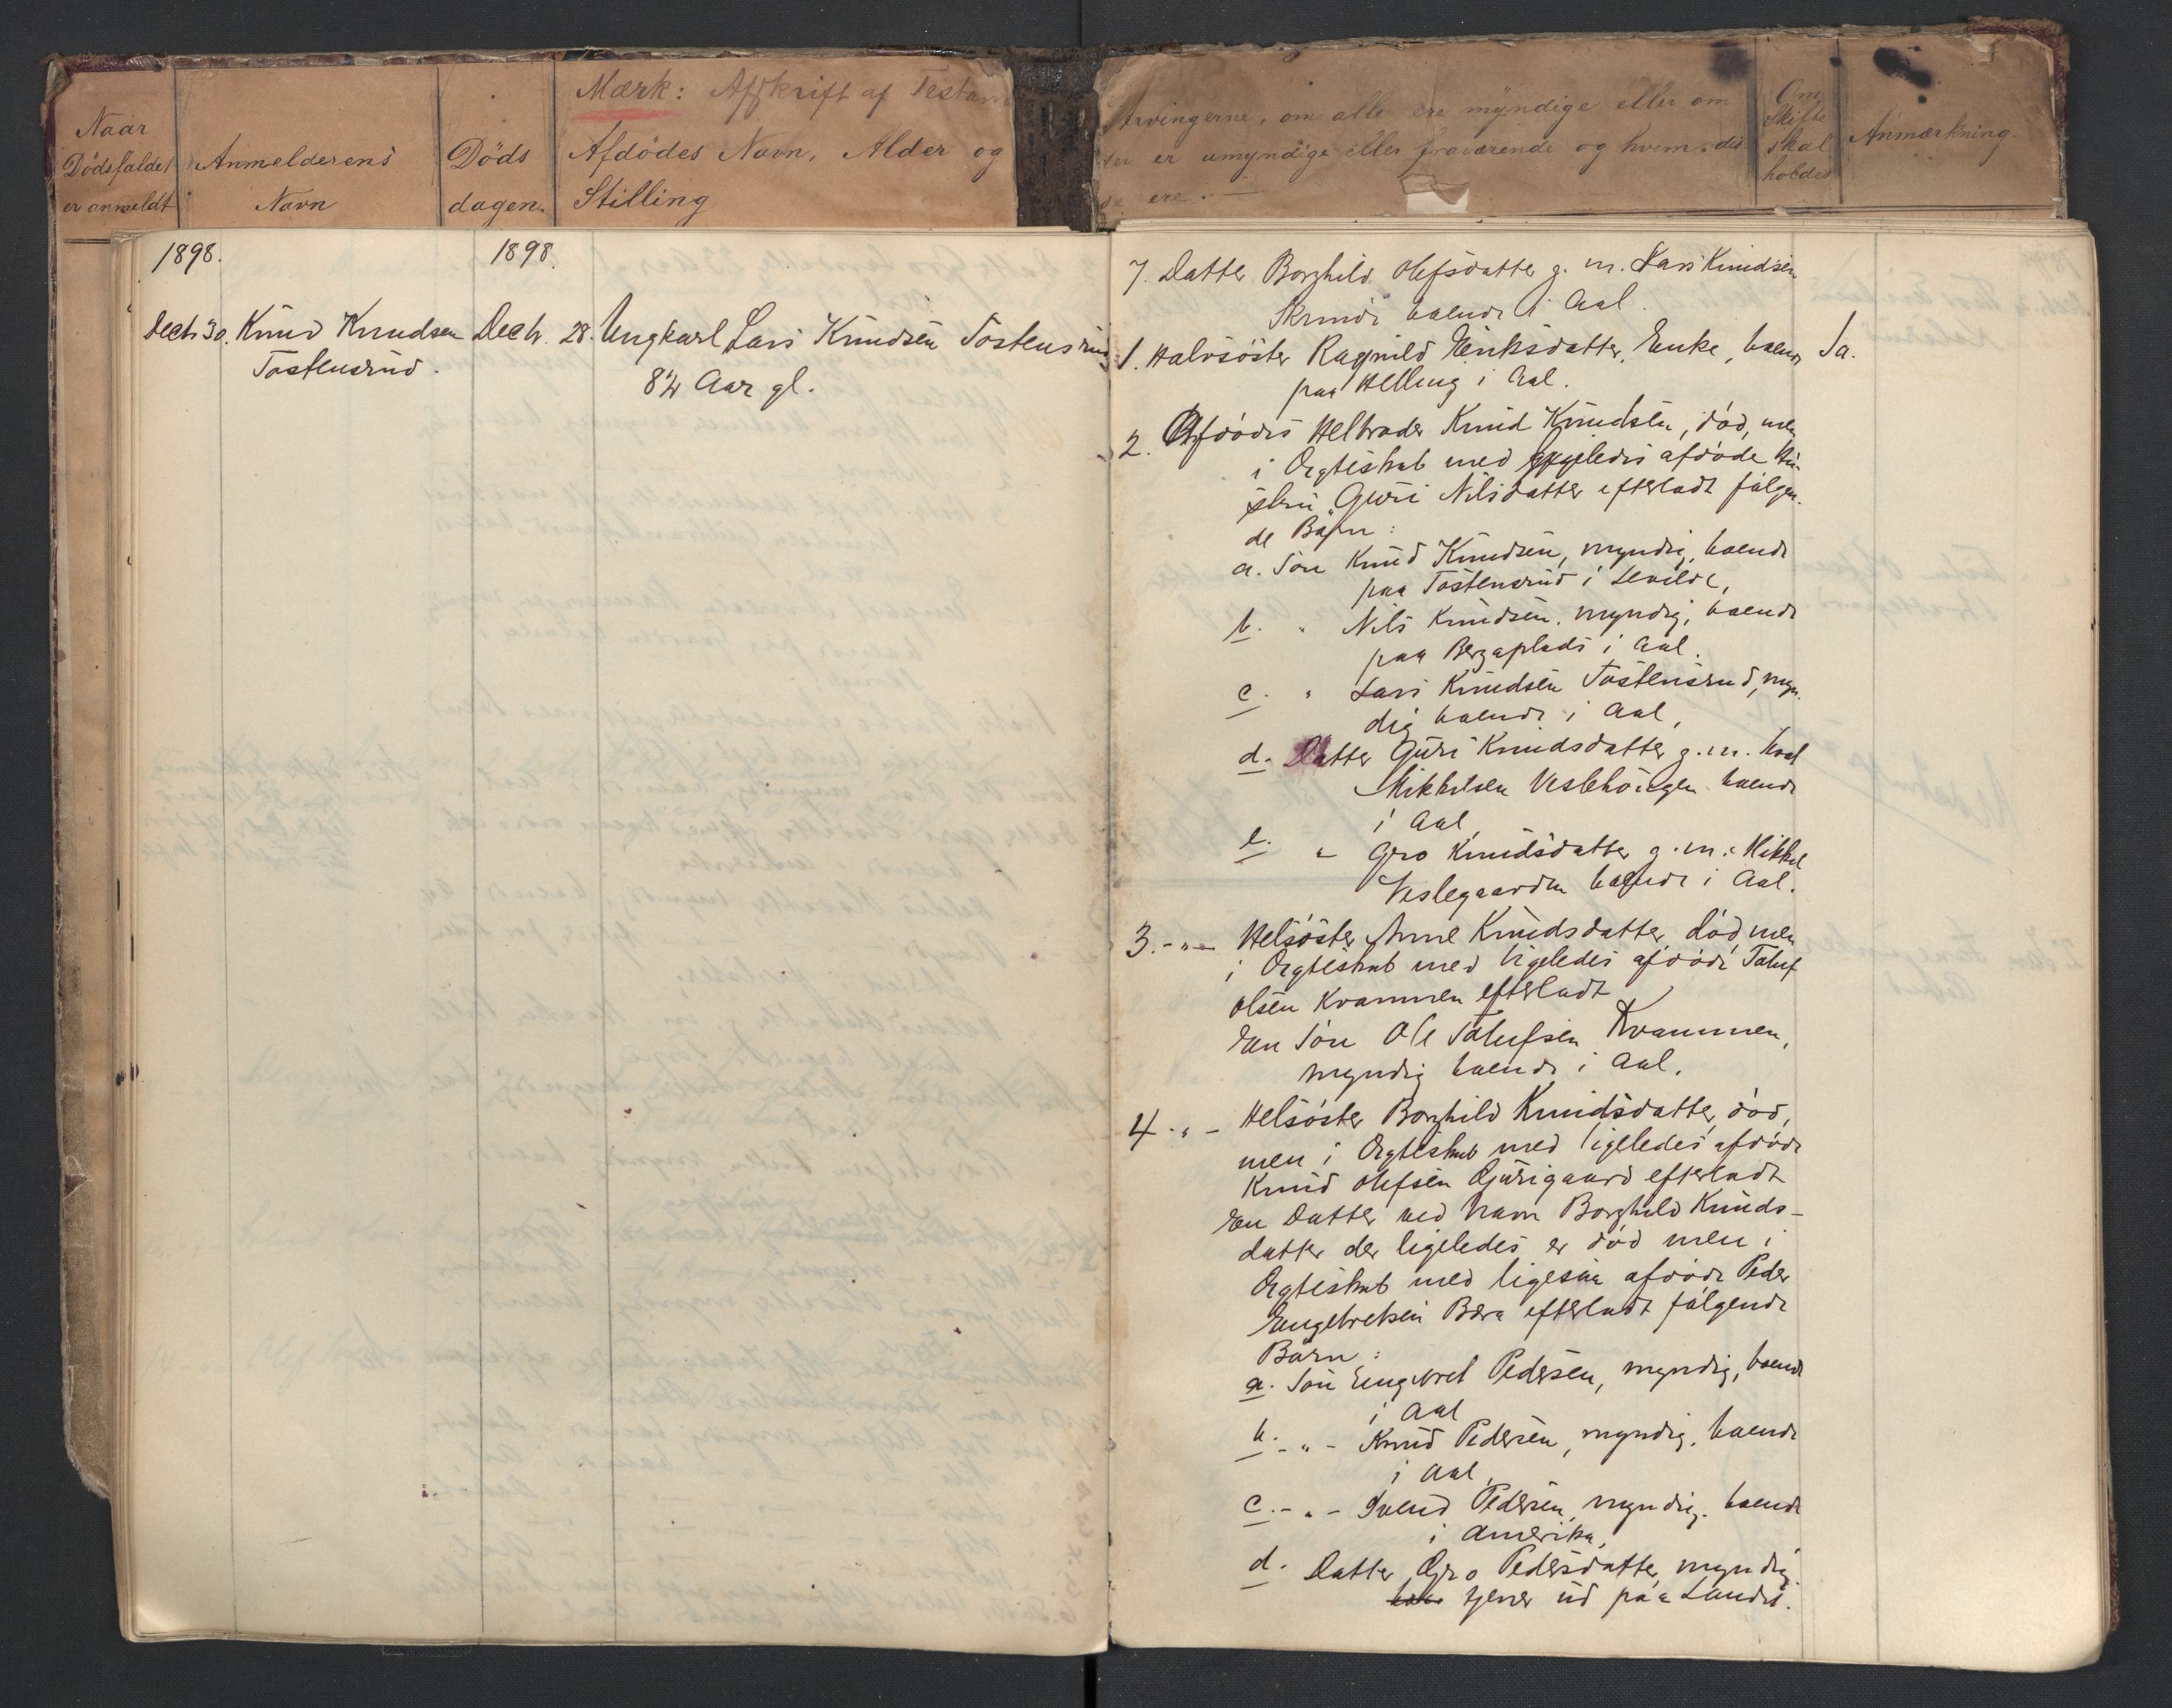 Naar
Dödsfaldet
er anmeldt
Anmelderens
Navn
Döds
dagen.
Mærk: Afskrift af Testam
Afdödes Navn, Alder og
Stilling
Arvingerne, om alle ere myndige eller om
der er umyndige eller fraværende og hvem dis
se ere.
Om
Skifte
skal
holdes
Anmærkning.
1898.
1898.
Decbr 30. Knud Knudsen
Tostensrud.
Decbr. 28. Ungkarl Lars Knudsen Tostensrud
82 Aar gl.
7. Datter Borghild Olefsdatter g. m. Lars Knudsen
Skrindi boende i Aal.
1. Halvsöster Ragnild Eriksdatter, Enke, boende
paa Helling i Aal.
Ja.
2. Afdödes Helbroder Knud Knudsen, död, men
i Ægteskab med ligeledes afdöde Hu-
stru Guri Nilsdatter efterladt fölgen-
de Börn:
a. Sön Knud Knudsen, myndig, boende
paa Tostensrud i Leveld,
b. " Nils Knudsen, myndig, boende
paa Bergaplads i Aal.
c. " Lars Knudsen Tostensrud, myn-
dig boende i Aal,
d. Datter Guri Knudsdatter g. m.
Mikkelsen Veslehaugen boende
i Aal,
e. " Gro Knudsdatter g. m. Mikkel
Veslegaarden boende i Aal.
3. - " - Helsöster Anne Knudsdatter död, men
i Ægteskab med ligeledes afdöde Tolluf
Olsen Kvammen efterladt
En Sön Ole Tollufsen Kvammen,
myndig boende i Aal.
4. " - Helsöster Borghild Knudsdatter, död,
men i Ægteskab med ligeledes afdöde
Knud Olefsen Gjurigaard efterladt
En Datter ved Navn Borghild Knuds-
datter der ligeledes er död men i
Ægteskab med ligesaa afdöde Peder
Engebretsen Bæra efterladt fölgende
Börn:
a. Sön Engebret Pedersen, myndig, boende
i Aal
b. - " - Knud Pedersen, myndig, boende
i Aal,
c. - " - Svend Pedersen, myndig. boende
i Amerika,
d. Datter Gro Pedersdatter, myndig.
tjener ud paa Landet.